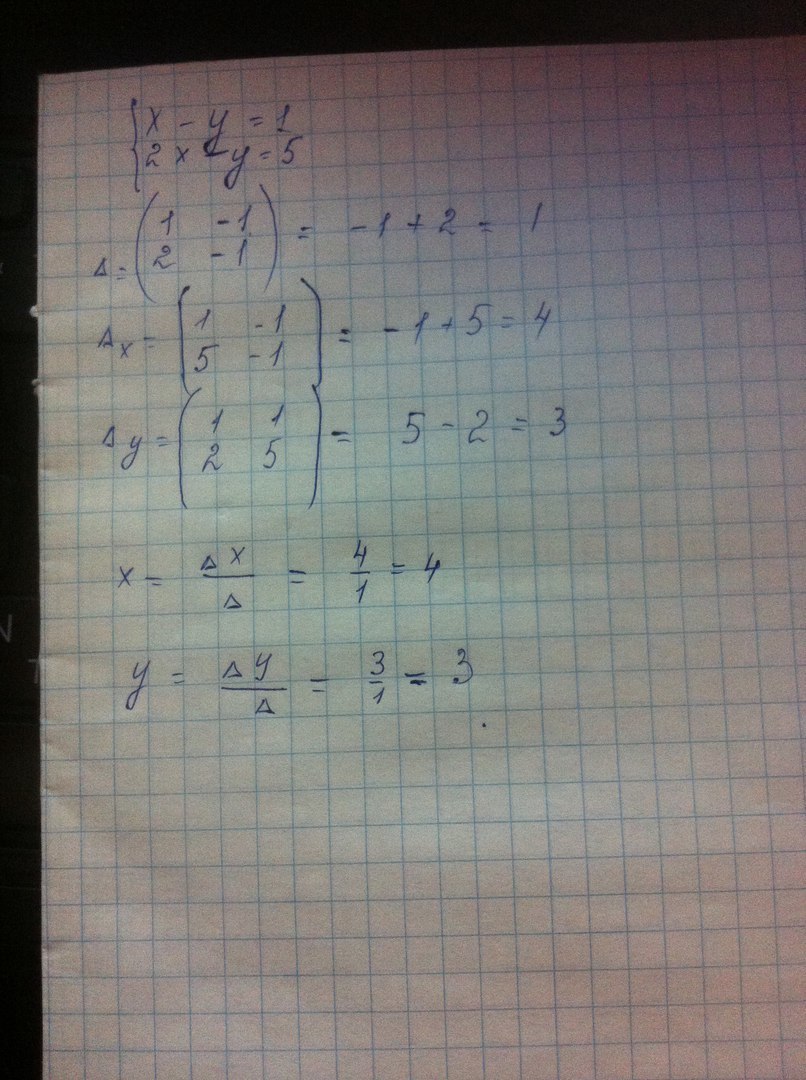 { x - y = 1
2x - y = 5
Δ = ( 1 -1
2 -1 ) = -1 + 2 = 1
Δx = ( 1 -1
5 -1 ) = -1 + 5 = 4
Δy = ( 1 1
2 5 ) = 5 - 2 = 3
x = Δx/Δ = 4/1 = 4
y = Δy/Δ = 3/1 = 3